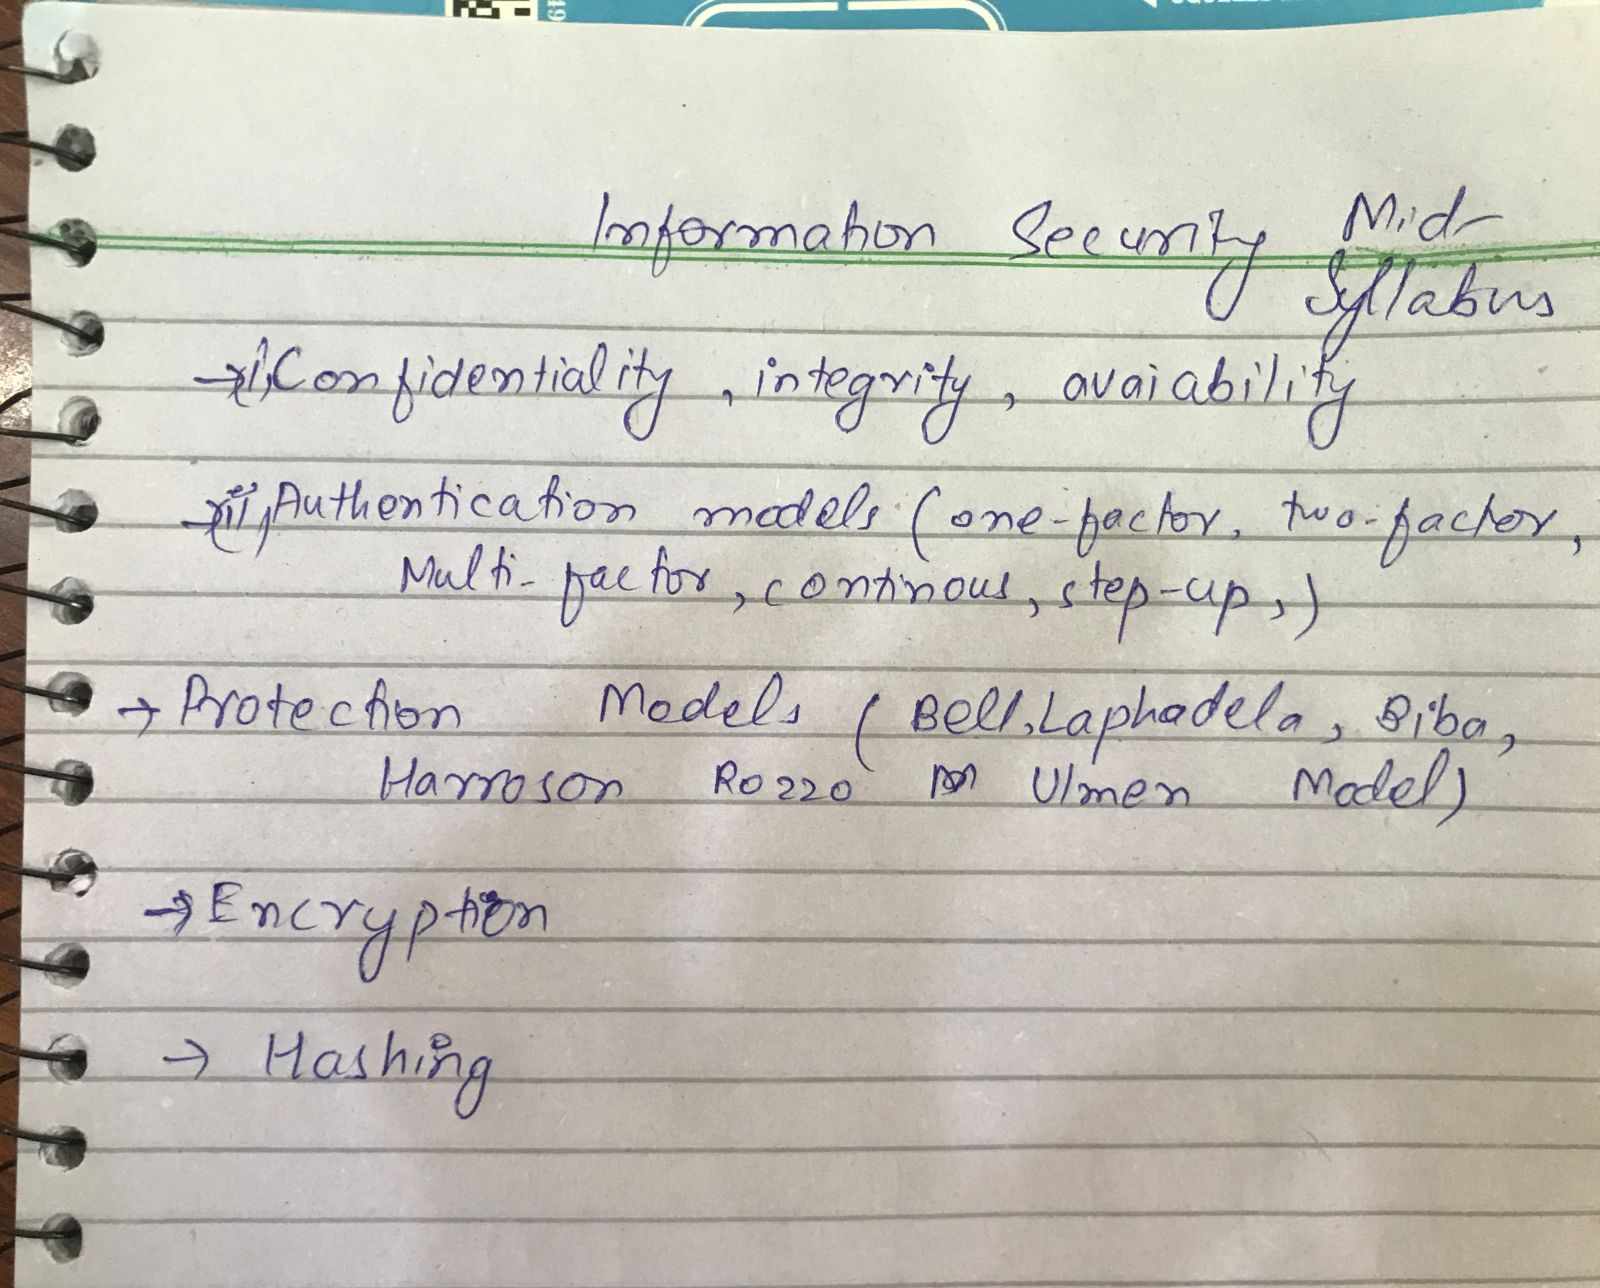 Information Security Mid-
Syllabus
→i, Confidentiality, integrity, avaiability
→ii, Authentication models (one-factor, two-factor,
Multi-factor, continous, step-up,)
→ Protection Models (Bell.Laphadela, Biba,
Harroson Rozzo Ulmen Model)
→ Encryption
→ Hashing